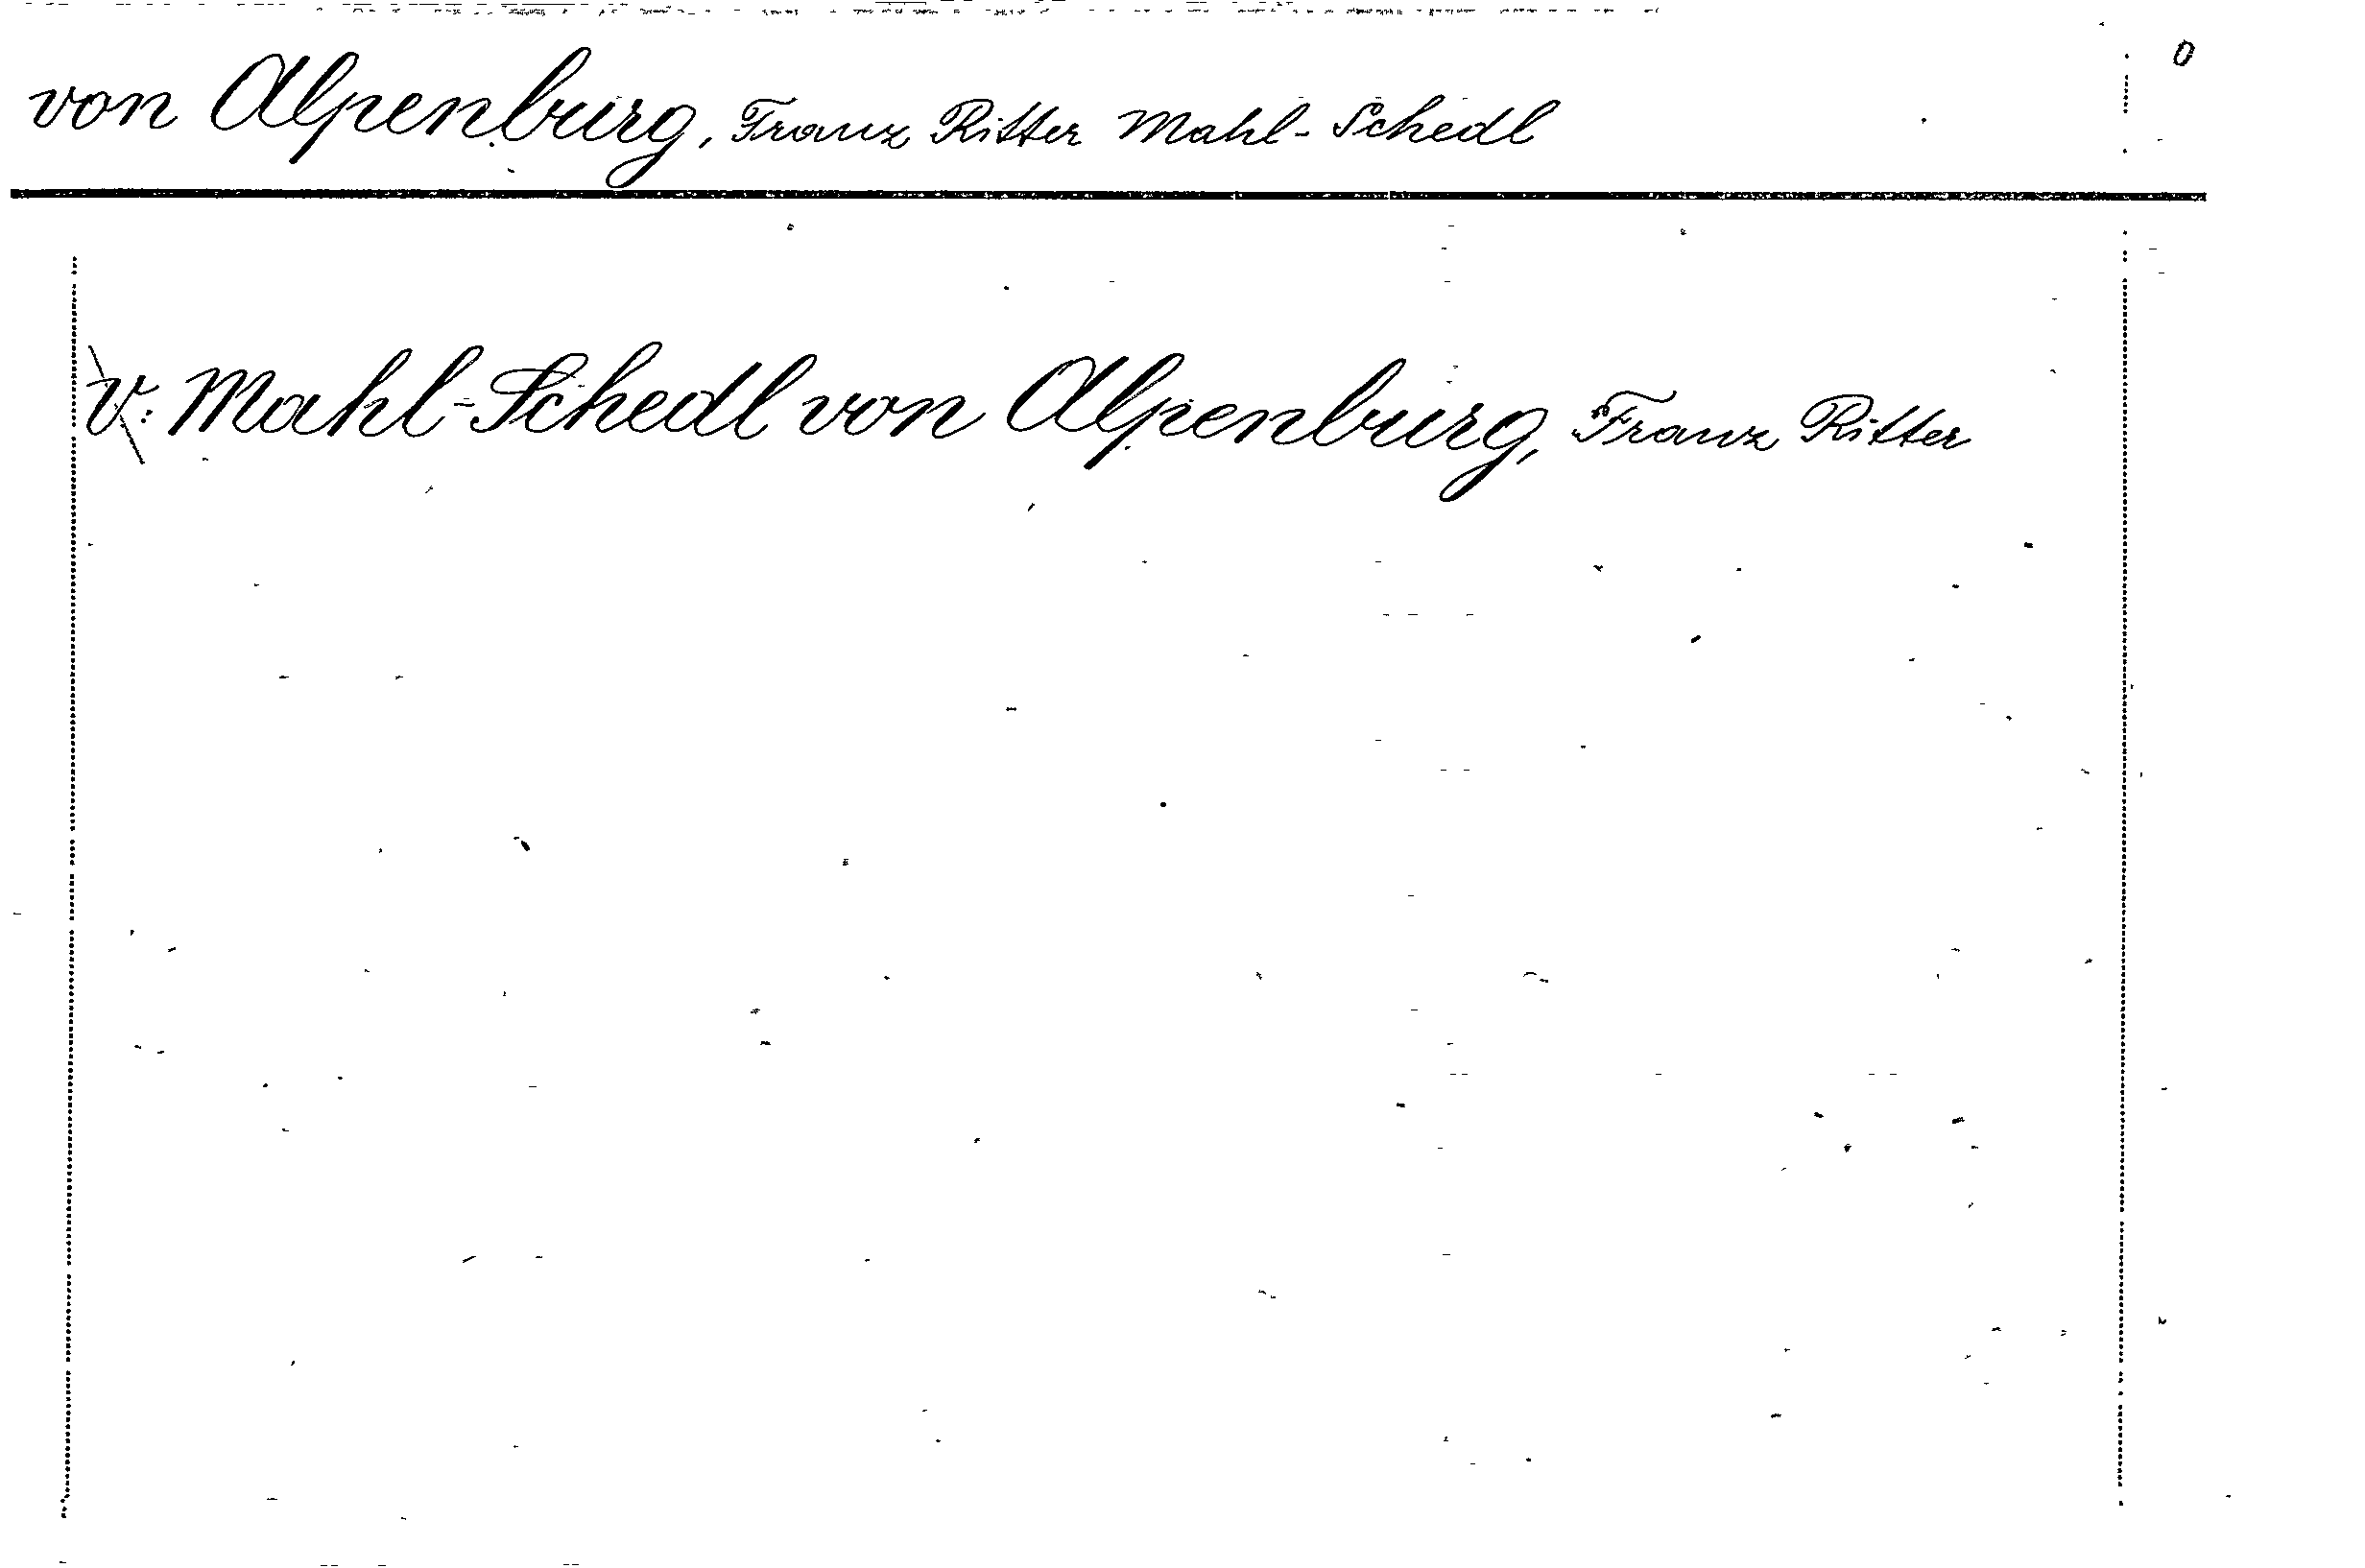 von Alpenburg, Franz Ritter Mahl-Schedl
v: Mahl-Schedl von Alpenburg, Franz Ritter